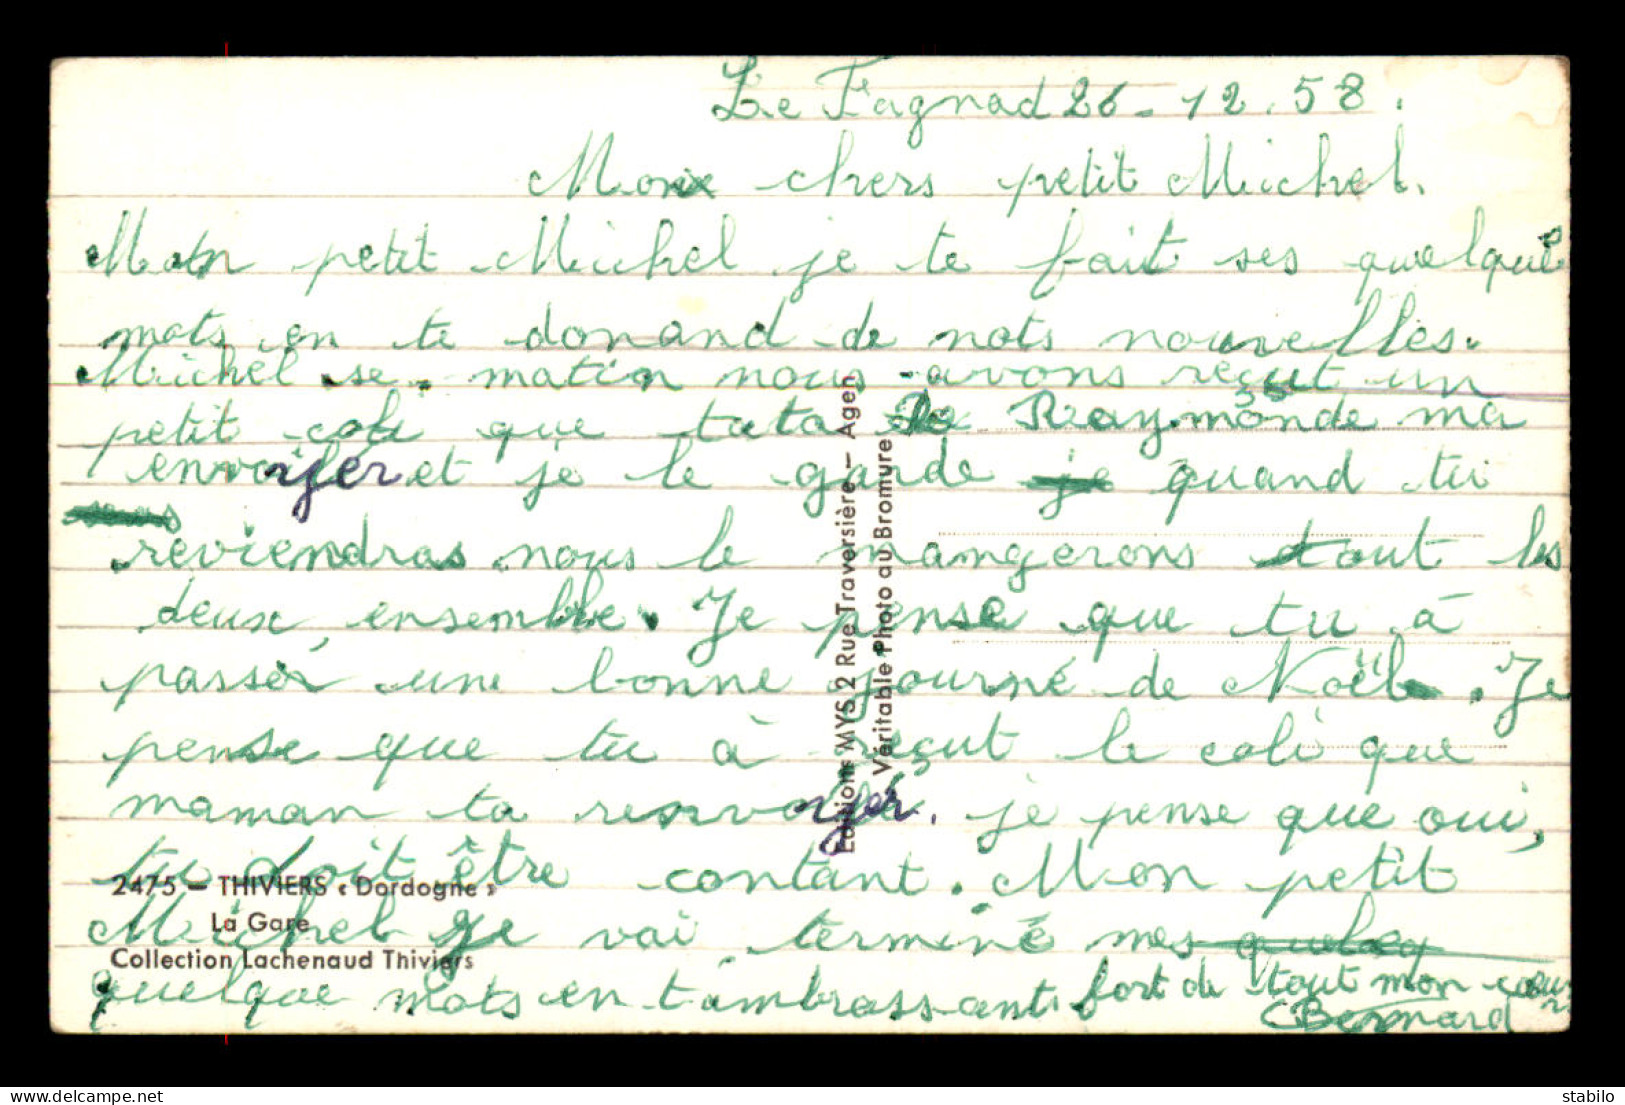 Le Fagnad 26 - 12 . 58 .
Mon chers petit Michel.
Mon petit Michel je te fait ses quelque
mots en te donand de nots nouvelles.
Michel se matin nous avons reçut un
petit coli que tata Raymonde ma
envoiyer et je le garde je quand tu
reviendras nous le mangerons tout les
deux ensemble. Je pense que tu à
passér une bonne journé de Noël. Je
pense que tu à reçut le coli que
maman ta renvoyer. je pense que oui,
tu doit être contant. Mon petit
Michel je vai terminé mes
quelque mots en t'ambrassant fort de tout mon cœur
Bernard
2475 - THIVIERS « Dordogne »
La Gare
Collection Lachenaud Thiviers
Editions MYS 2 Rue Traversière - Agen
Véritable Photo au Bromure
delcampe.net
sfalbo